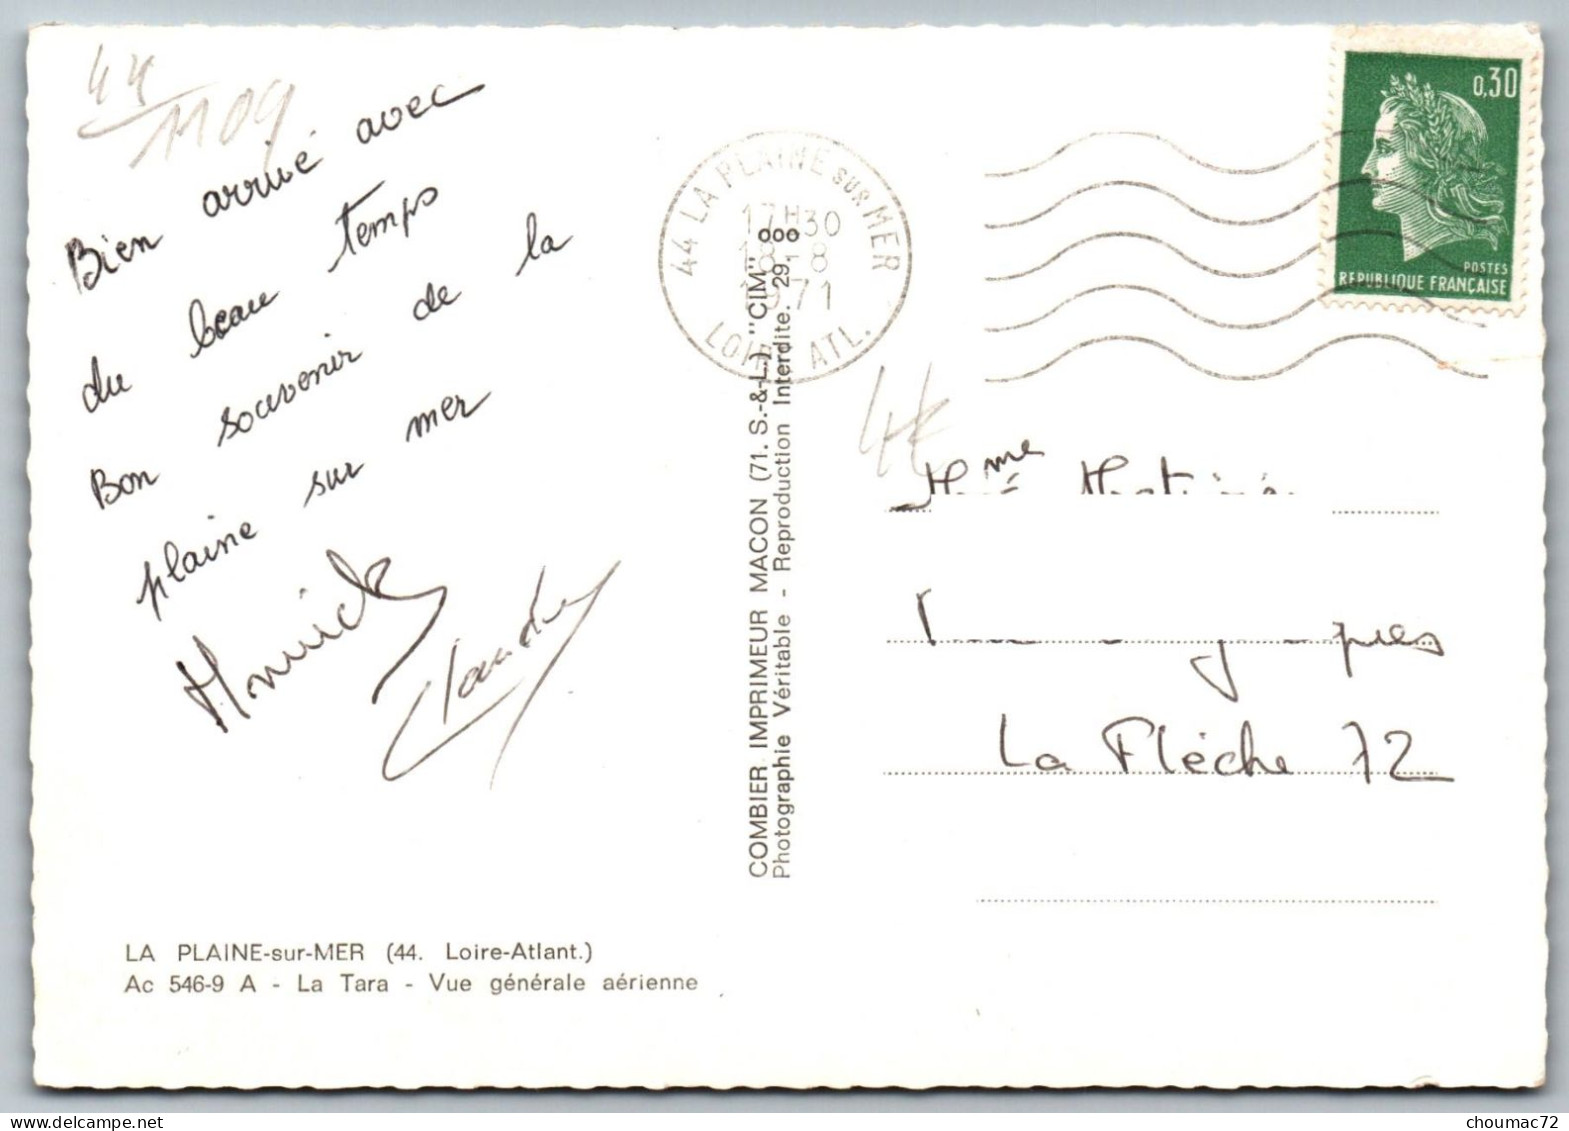 44
1109
Bien arrivé avec
du beau temps
Bon souvenir de la
plaine sur mer
Annick
Claudie
LA PLAINE-sur-MER (44. Loire-Atlant.)
Ac 546-9 A - La Tara - Vue générale aérienne
COMBIER IMPRIMEUR MACON (71. S.-&-L.) "CIM"
Photographie Véritable - Reproduction Interdite. 29
44 LA PLAINE sur MER
17H30
18-8
1971
LOIRE ATL.
0,30
POSTES
REPUBLIQUE FRANÇAISE
4€
Mme
La Flèche 72
choumac72